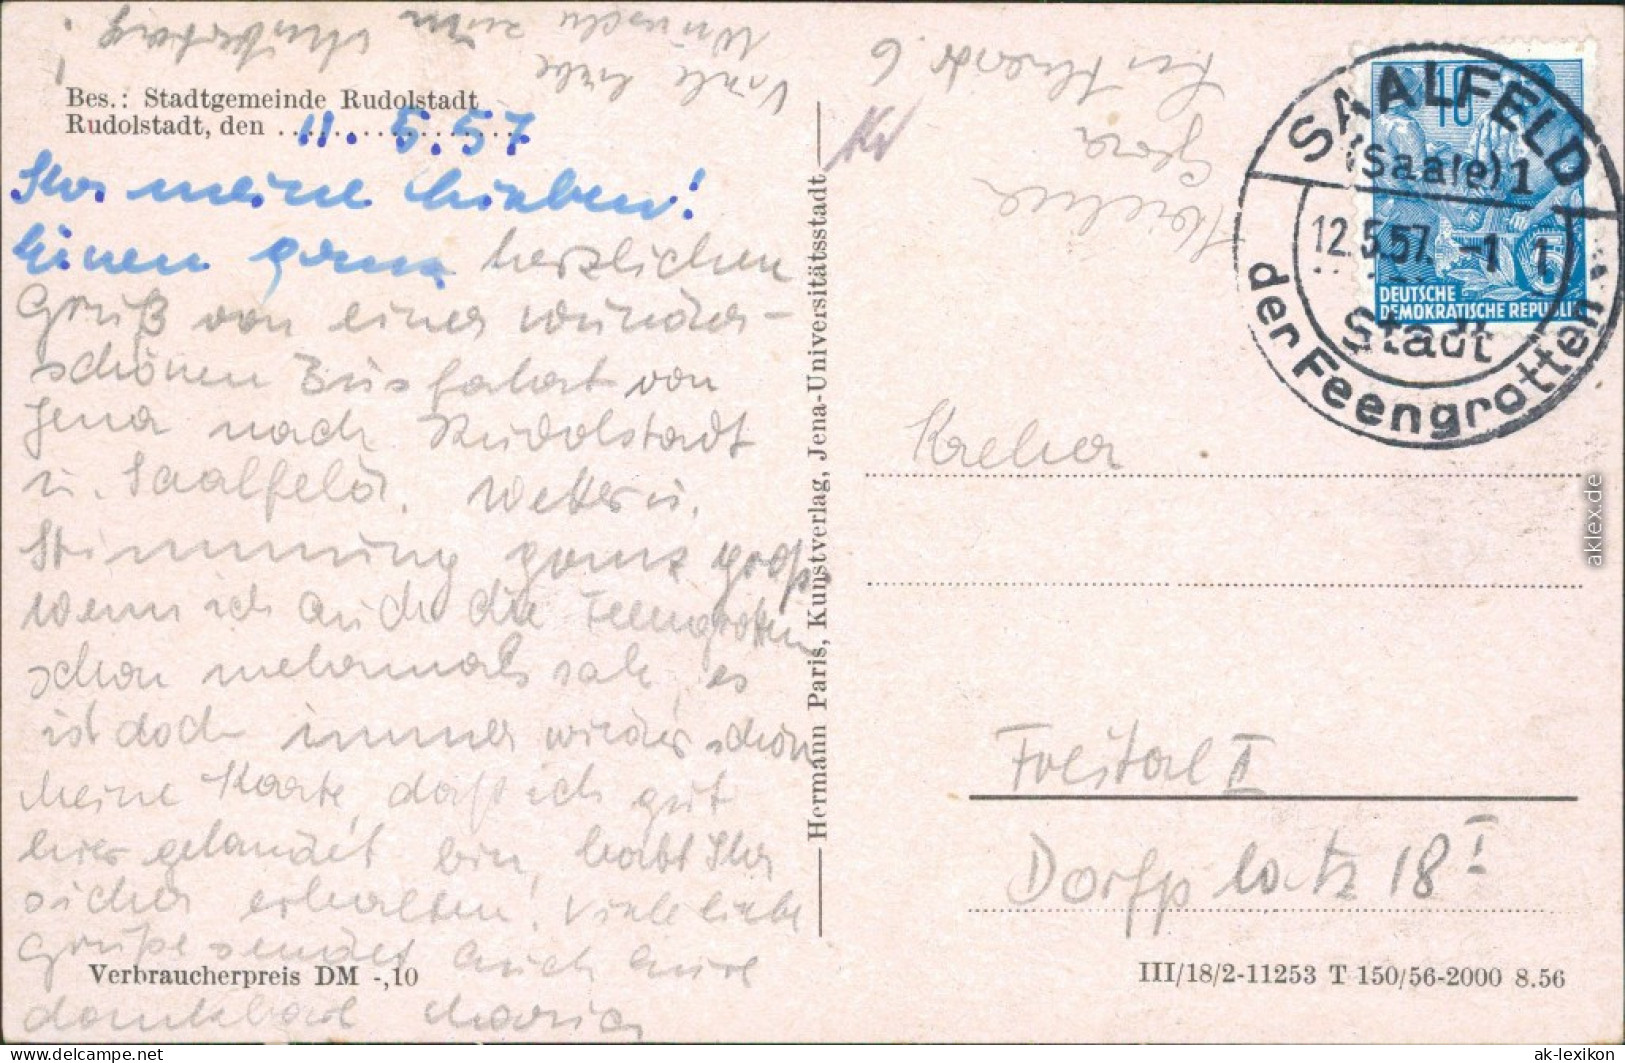 Viele liebe
Wünsche zum Muttertag!
Bes.: Stadtgemeinde Rudolstadt
Rudolstadt, den 11.5.57
Ihr meine Lieben!
Einen ganz herzlichen
Gruß von einer wunder-
schönen Busfahrt von
Jena nach Rudolstadt
u. Saalfeld. Wetter u.
Stimmung ganz groß.
Wenn ich auch die Feengrotten
schon mehrmals sah, es
ist doch immer wieder schön
Meine Karte, daß ich gut
hier gelandet bin, habt Ihr
sicher erhalten! Viele liebe
Grüße sendet Euch Eure
dankbare Maria
Verbraucherpreis DM -,10
Hermann Paris, Kunstverlag, Jena-Universitätsstadt
6
Gera
SAALFELD
(Saale) 1
12.5.57.-1
Stadt
der Feengrotten
10
DEUTSCHE
DEMOKRATISCHE REPUBLIK
Kreher
Freital II
Dorfplatz 18 I
III/18/2-11253 T 150/56-2000 8.56
aklex.de
www.delcampe.net
ak-lexikon